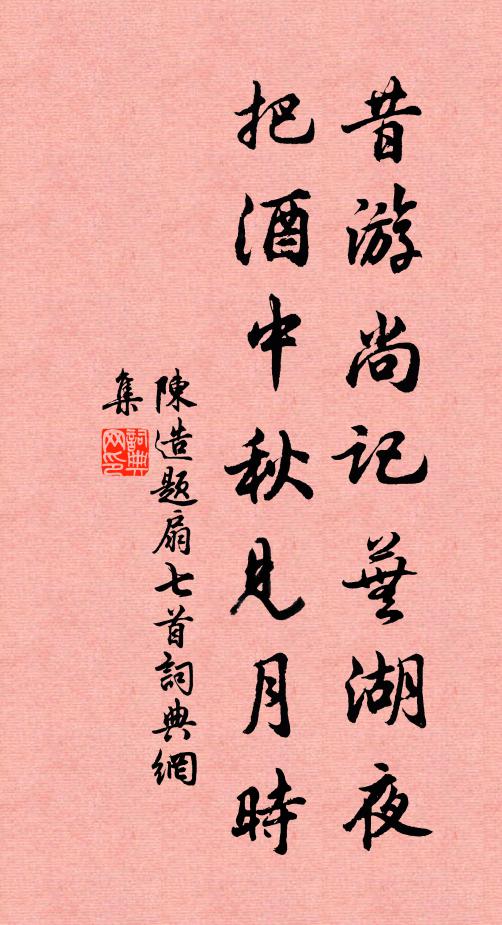 昔游尚记蕪湖夜
把酒中秋見月時
陳造題扇七首詞典網
集
詞典网印